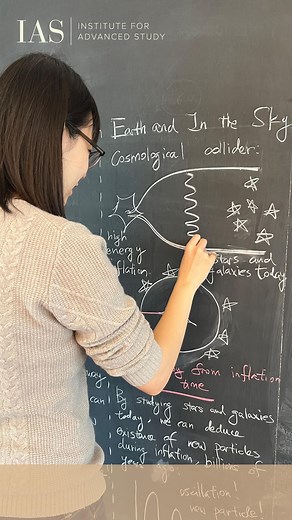 IAS
INSTITUTE FOR
ADVANCED STUDY
Earth and In the Sky
Cosmological collider:
high
energy
inflation.
stars and
galaxies today
from inflation
time
can
By studying stars and galaxies
today, we can deduce
existence of new particles
during inflation, billions of
oscillation!
new particle!